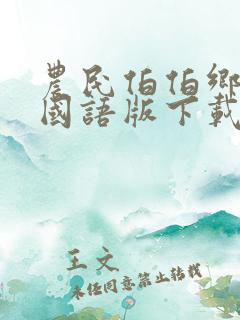 農民伯伯鄉
國語版下載
王文
未經同意禁止轉載